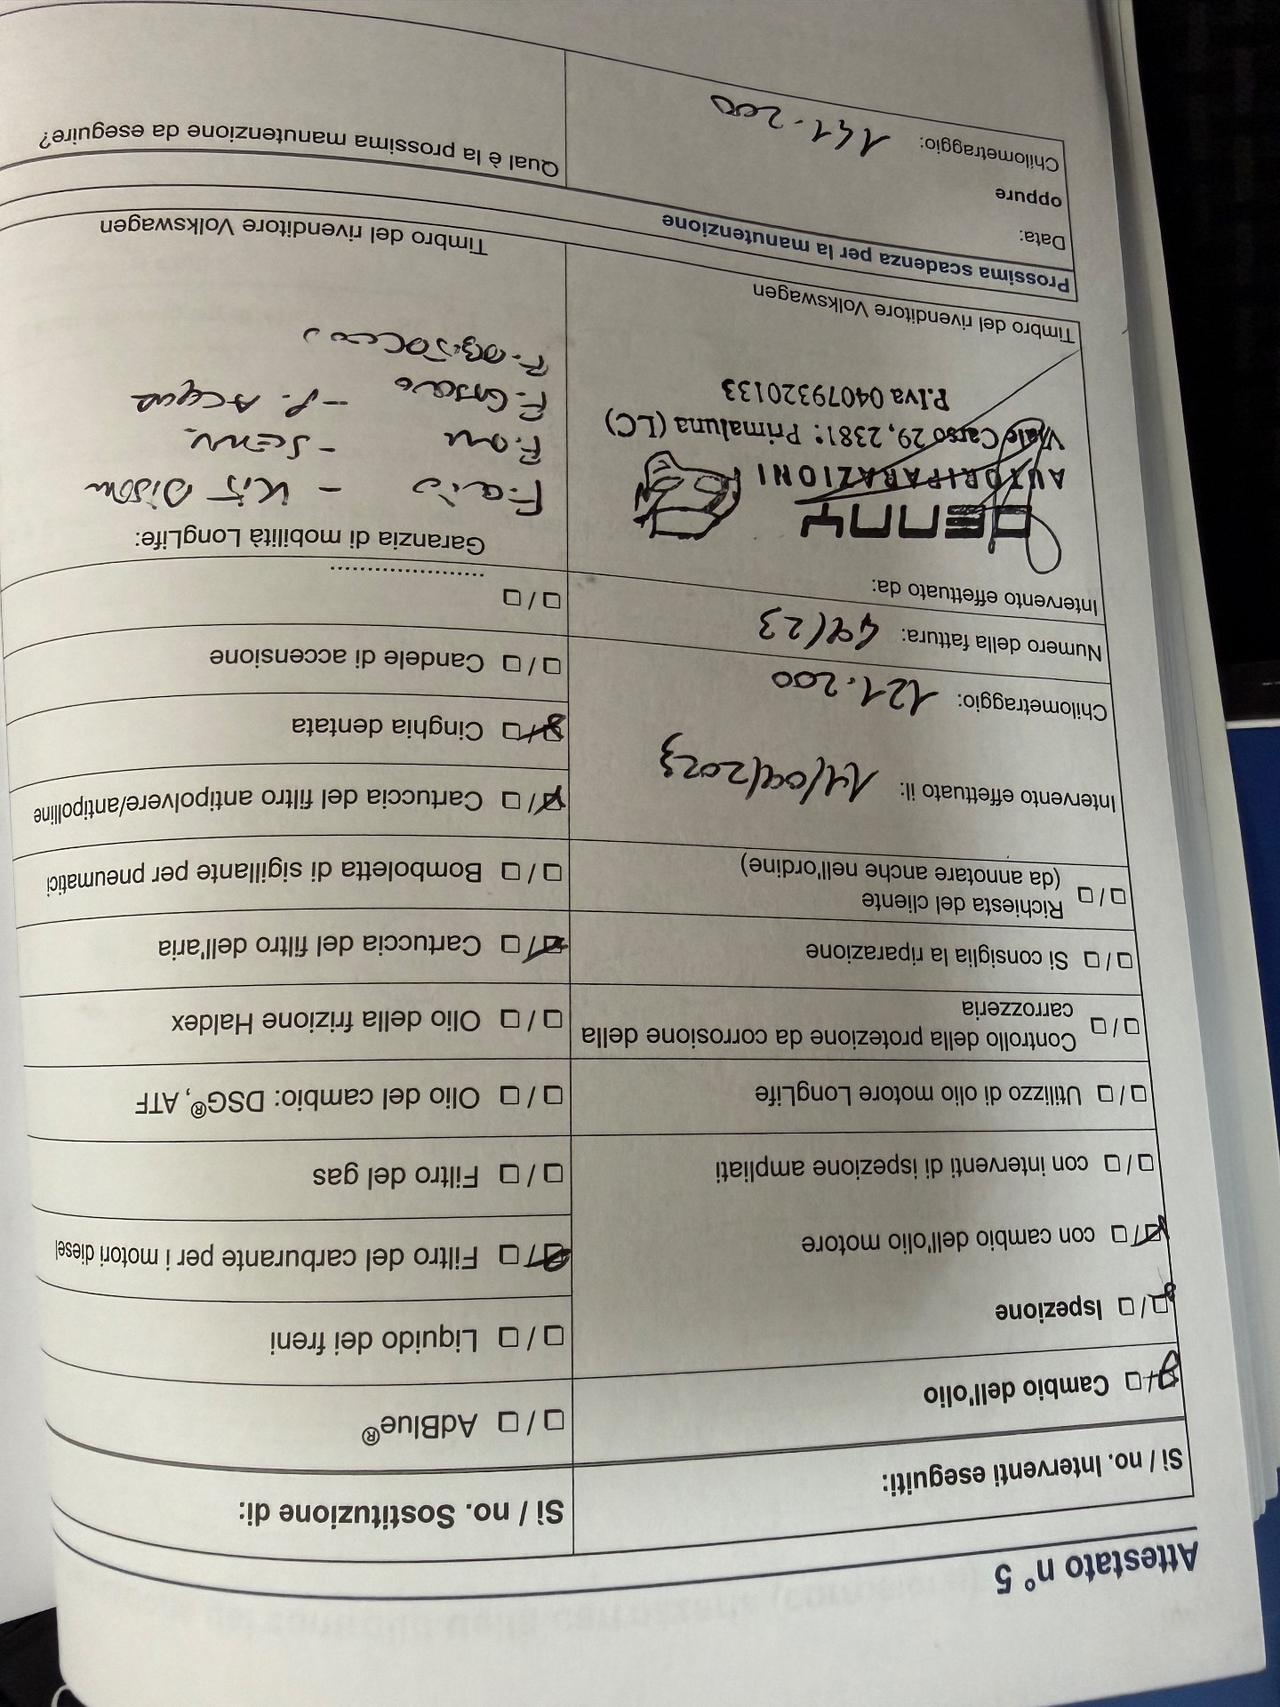 Attestato n° 5
Sì / no. Interventi eseguiti:
Cambio dell'olio
Ispezione
con cambio dell'olio motore
con interventi di ispezione ampliati
Utilizzo di olio motore LongLife
Controllo della protezione da corrosione della
carrozzeria
Si consiglia la riparazione
Richiesta del cliente
(da annotare anche nell'ordine)
Intervento effettuato il: 14/04/2023
Chilometraggio: 121.200
Numero della fattura:
Intervento effettuato da:
DENNY
AUTORIPARAZIONI
Viale Carso 29, 2381: Primaluna (LC)
P.Iva 04079320133
Timbro del rivenditore Volkswagen
Sì / no. Sostituzione di:
AdBlue®
Liquido dei freni
Filtro del carburante per i motori diesel
Filtro del gas
Olio del cambio: DSG®, ATF
Olio della frizione Haldex
Cartuccia del filtro dell'aria
Bomboletta di sigillante per pneumatici
Cartuccia del filtro antipolvere/antipolline
Cinghia dentata
Candele di accensione
Garanzia di mobilità LongLife:
- Kit
- P. Acqua
Timbro del rivenditore Volkswagen
Prossima scadenza per la manutenzione
Data:
oppure
Chilometraggio: 141.200
Qual è la prossima manutenzione da eseguire?